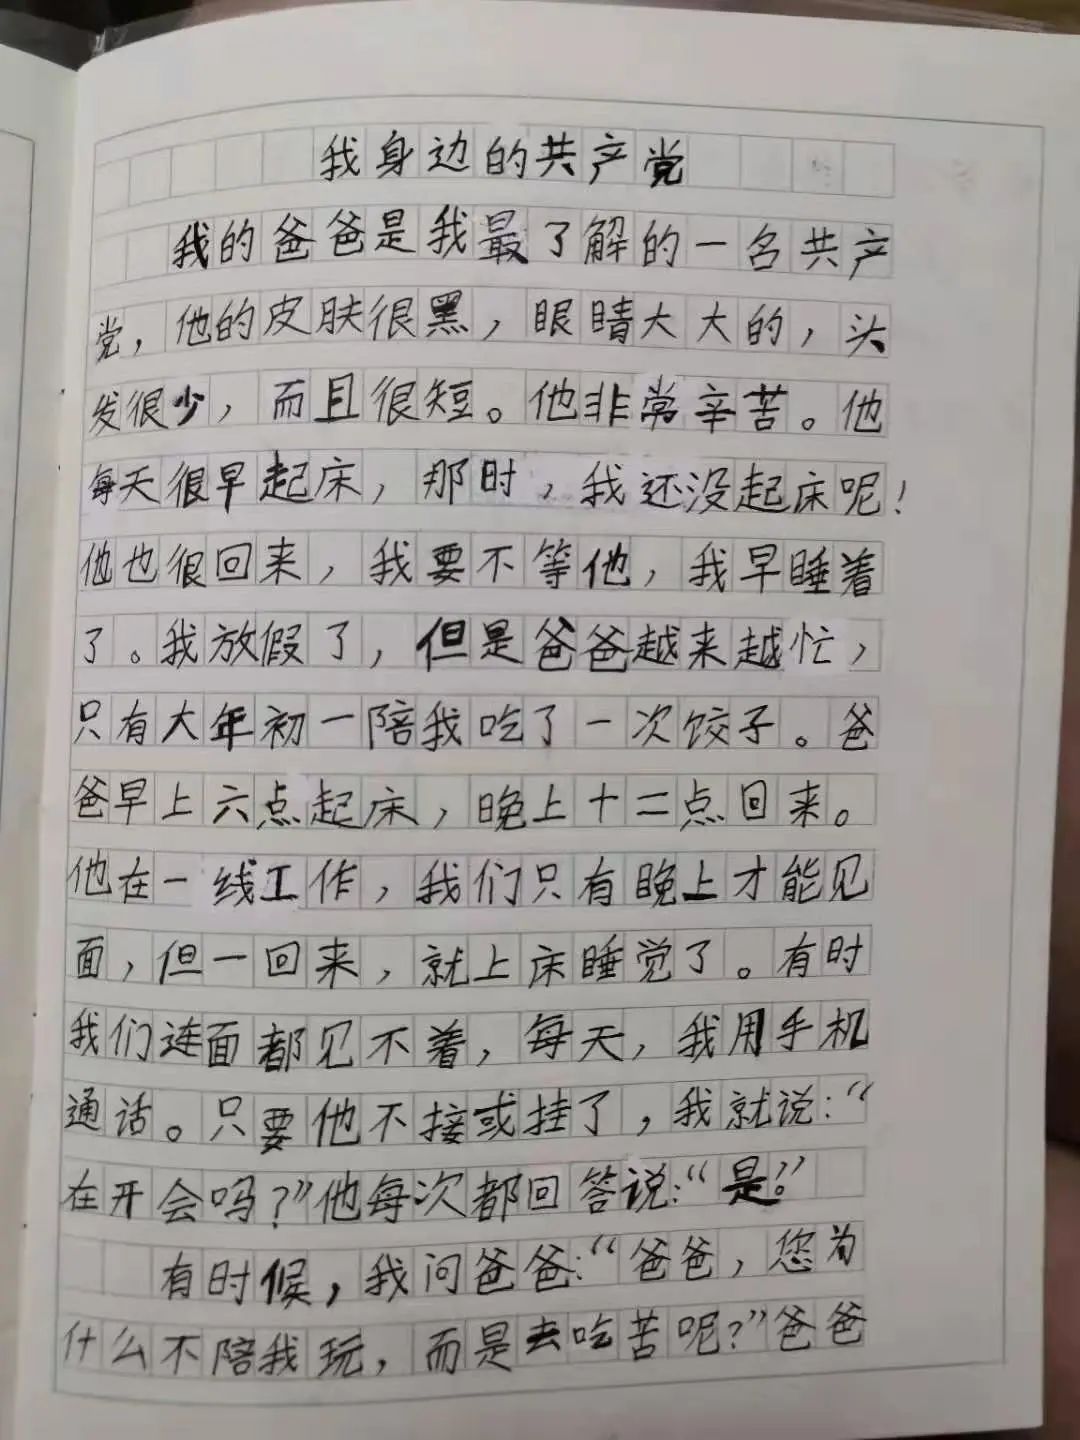 我身边的共产党
我的爸爸是我最了解的一名共产
党，他的皮肤很黑，眼睛大大的，头
发很少，而且很短。他非常辛苦。他
每天很早起床，那时，我还没起床呢！
他也很回来，我要不等他，我早睡着
了。我放假了，但是爸爸越来越忙，
只有大年初一陪我吃了一次饺子。爸
爸早上六点起床，晚上十二点回来。
他在一线工作，我们只有晚上才能见
面，但一回来，就上床睡觉了。有时
我们连面都见不着，每天，我用手机
通话。只要他不接或挂了，我就说：“
在开会吗？”他每次都回答说：“是。”
有时候，我问爸爸：“爸爸，您为
什么不陪我玩，而是去吃苦呢？”爸爸